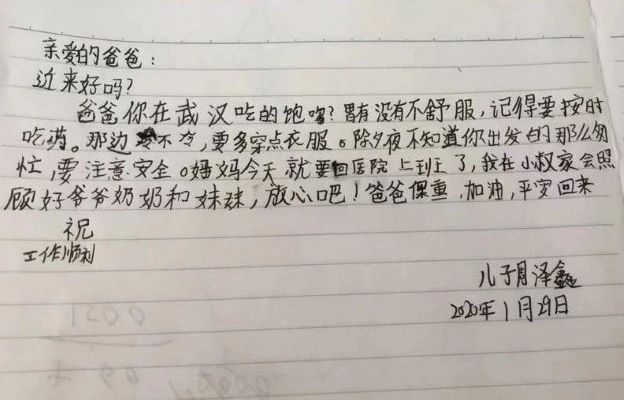 亲爱的爸爸:
近来好吗?
爸爸你在武汉吃的饱吗?胃有没有不舒服,记得要按时
吃药。那边冷不冷,要多穿点衣服。除夕夜不知道你出发的那么匆
忙,要注意安全。妈妈今天就要回医院上班了,我在小叔家会照
顾好爷爷奶奶和妹妹,放心吧!爸爸保重,加油,平安回来
祝
工作顺利
儿子周泽鑫
2020年1月29日